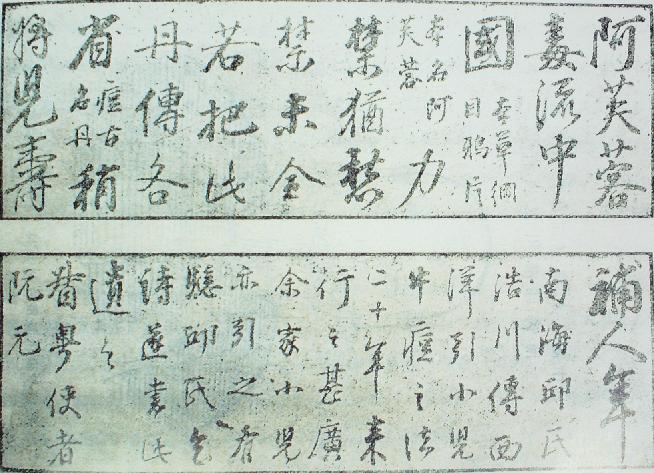 阿芙蓉
毒流中
國本草綱目鴉片
本名阿芙蓉力
禁猶愁
禁未全
若把此
丹傳各
省痘古名丹稍
將兒壽
補人年
南海邱氏
浩川傳西
洋引小兒
牛痘之法
二十年來
行之甚廣
余家小兒
亦引之有
驗邱氏乞
詩遂書此
遺之
督粤使者
阮元